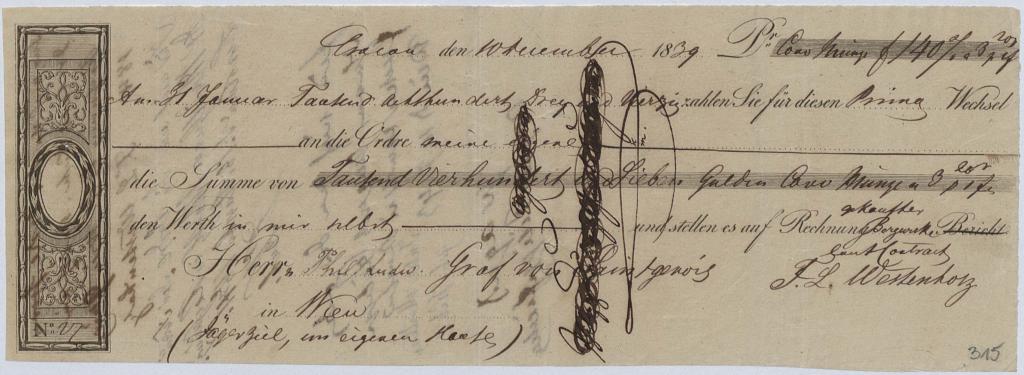 Cracau den 10 December 1839 Pr. Conv Münze f 1407 a 3 20r pr f
Am 31 Januar Tausend achthundert Drey und Vierzig zahlen Sie für diesen Prima Wechsel
an die Ordre meine eigene
die Summe von Tausend Vierhundert Sieben Gulden Conv Münze a 3 20r p f
den Werth in mir selbst und stellen es auf Rechnung gekaufter Bergwerke Bericht
laut Contract
Herrn Phil. Ludw. Graf von Saintgenois
F. L. Westenholz
in Wien
(Jägerziel, im eigenen Hause)
No. 27
315